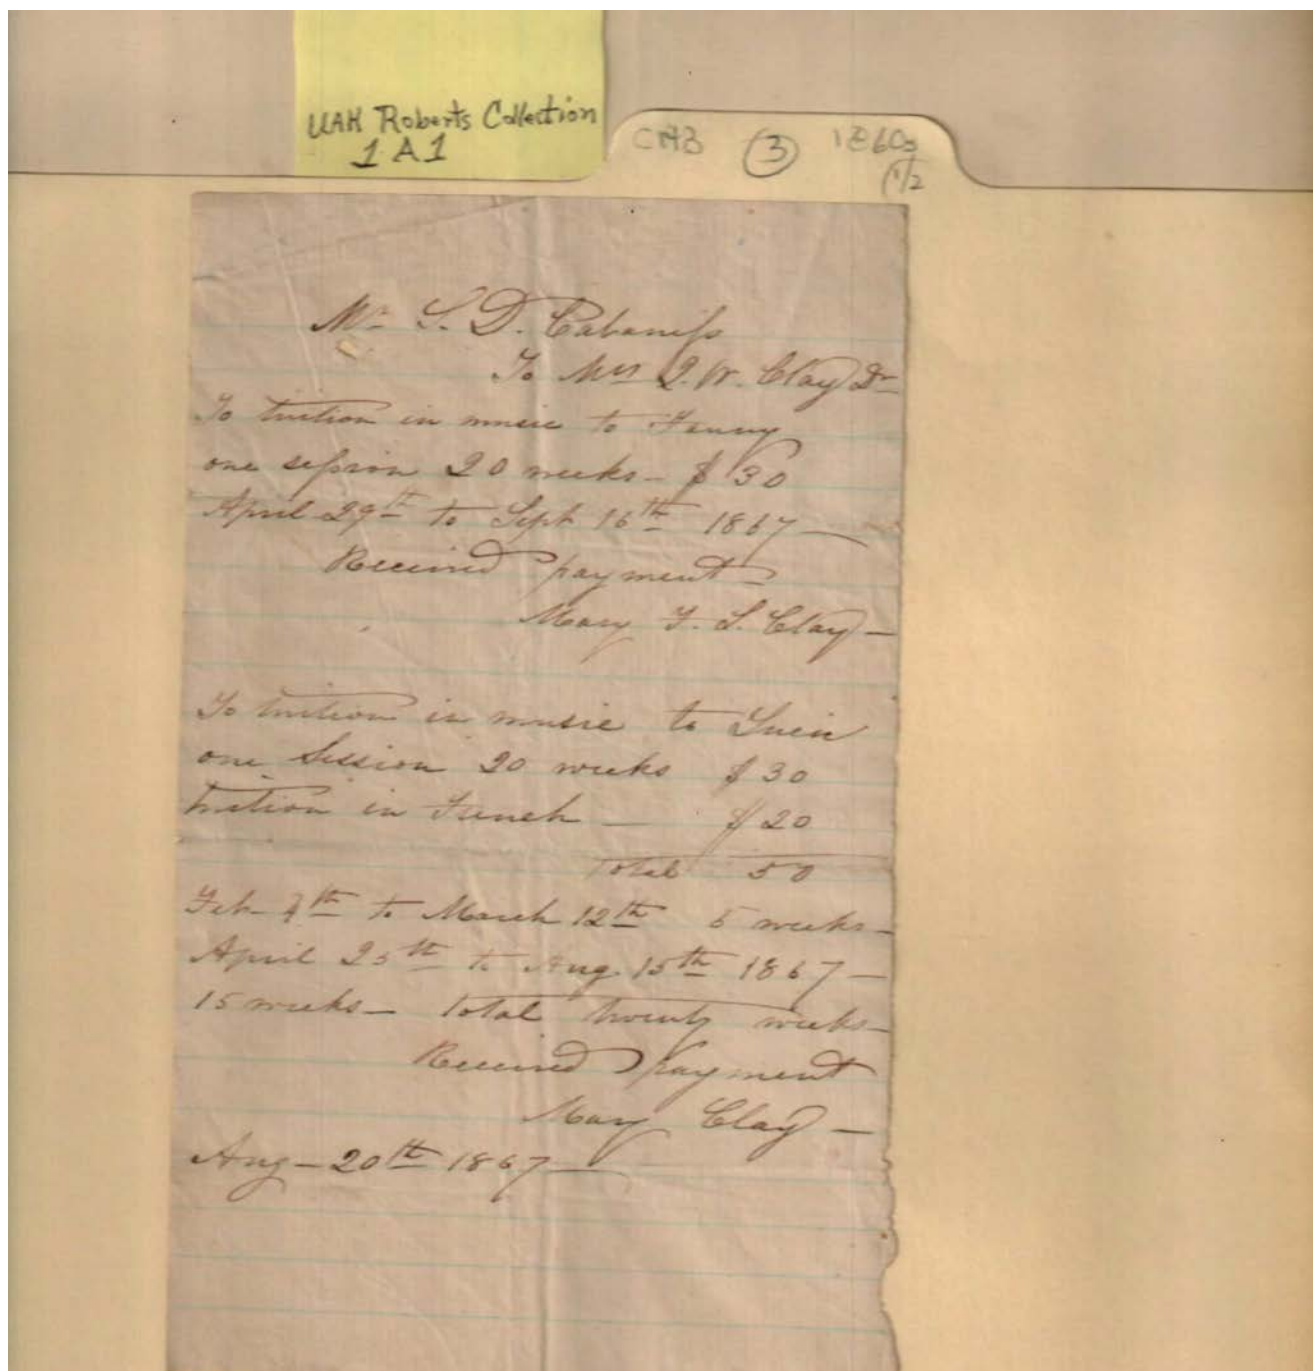 UAH Roberts Collection
1 A 1
CAB ③ 1860s
1/2
Mr. S. D. Cabaniss
To Mrs J. W. Clay Dr
To tuition in music to Fanny
one session 20 weeks - $30
April 29th to Sept 16th 1867 -
Received payment -
Mary F. L. Clay -
To tuition in music to Lucie
one Session 20 weeks $30
tuition in French - $20
Total 50
Feb- 4th to March 12th 5 weeks -
April 25th to Aug. 15th 1867 -
15 weeks - total twenty weeks -
Received payment
Mary Clay -
Aug - 20th 1867 -